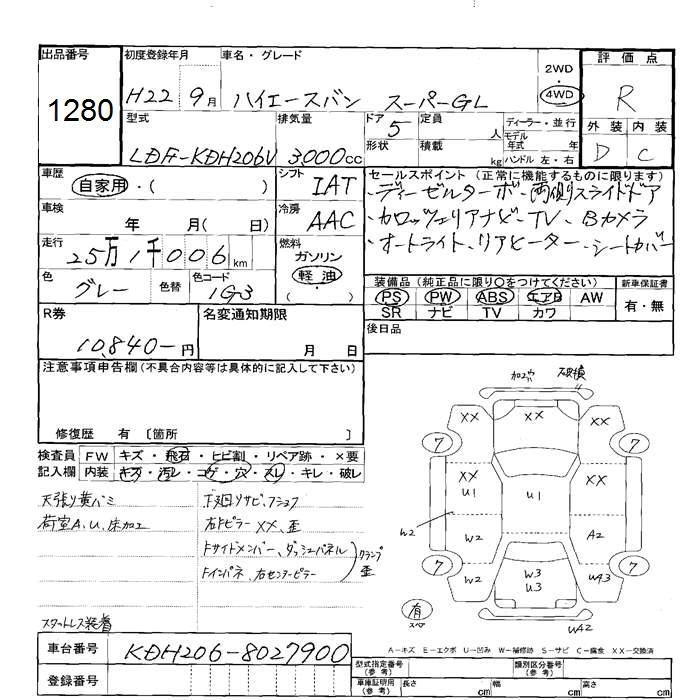 出品番号
1280
初度登録年月
H22 9月
車名・グレード
ハイエースバン スーパーGL
2WD
・
4WD
評価点
R
外装 内装
D C
型式
LDF-KDH206V
排気量
3,000cc
ドア
5
定員
人
ディーラー・並行
モデル年式 年
形状
積載
kg
ハンドル 左・右
車歴
自家用・( )
シフト
IAT
セールスポイント (正常に機能するものに限ります)
・ディーゼルターボ・両側スライドドア
・カロッツェリアナビ・TV、Bカメラ
・オートライト、リアヒーター・シートカバー
車検
年 月( 日)
冷房
AAC
走行
25万1千006km
燃料
ガソリン
軽油
( ・ )
色
グレー
色替
色コード
1G3
装備品 (純正品に限り○をつけてください)
PS PW ABS エアB AW
SR ナビ TV カワ
新車保証書
有・無
R券
10,840-円
名変通知期限
月 日
後日品
注意事項申告欄 (不具合内容等は具体的に記入して下さい)
修復歴 有 〔箇所 〕
検査員記入欄
FW キズ・飛石・ヒビ割・リペア跡・×要
内装 キズ・汚レ・コゲ・穴・スレ・キレ・破レ
天張り黄バミ
荷室A、U、床加工
下廻りサビ、フショク
右Fピラー XX、歪
Fサイドメンバー、ダッシュパネル
Fインパネ、右センターピラー
クランプ歪
スタットレス装着
加工穴 破損
XX XX XX
7 7
XX U1 U1 XX
W2 W2 A2
7 7
W2 W3 U3 U43
有
スペア
U42
A−キズ E−エクボ U−凹み W−補修跡 S−サビ C−腐食 XX−交換済
車台番号
KDH206-8027900
登録番号
型式指定番号(参考)
類別区分番号(参考)
車庫証明用(参考)
長さ cm
幅 cm
高さ cm